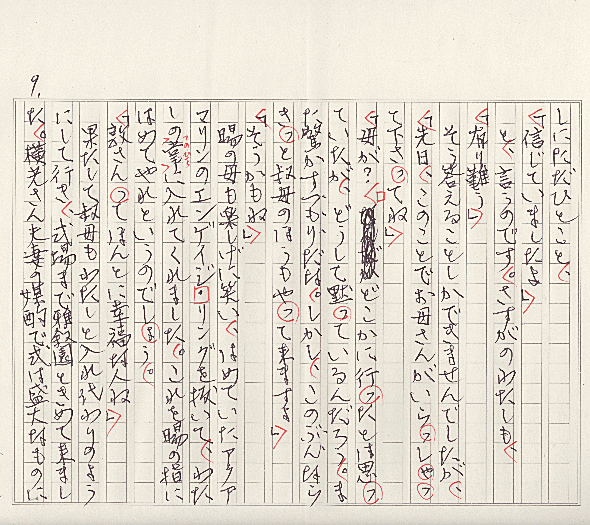 しにただひとこと、
「信じていましたよ」
と、言うのです。さすがのわたしも、
「有り難う」
そう答えることしかできませんでしたが、
「先日、このことでお母さんがいらっしゃっ
て下さってね」
「母が? どこかに行ったとは思っ
ていたが、どうして黙っているんだろう。ま
た驚かすつもりだな。しかし、このぶんなら
きっと叔母のほうもやって来ますよ」
「そうかもね」
賜の母も楽しげに笑い、はめていたアクア
マリンのエンゲイジ・リングを抜いて、わた
しの掌に入れてくれました。これを賜の指に
はめてやれというのでしょう。
「敦さんってほんとに幸福なんね」
果たして叔母もわたしと入れ代わりのよう
にして行き、式場まで雅叙園ときめて来まし
た。横光さん夫妻の媒酌で式は盛大なものに
9.